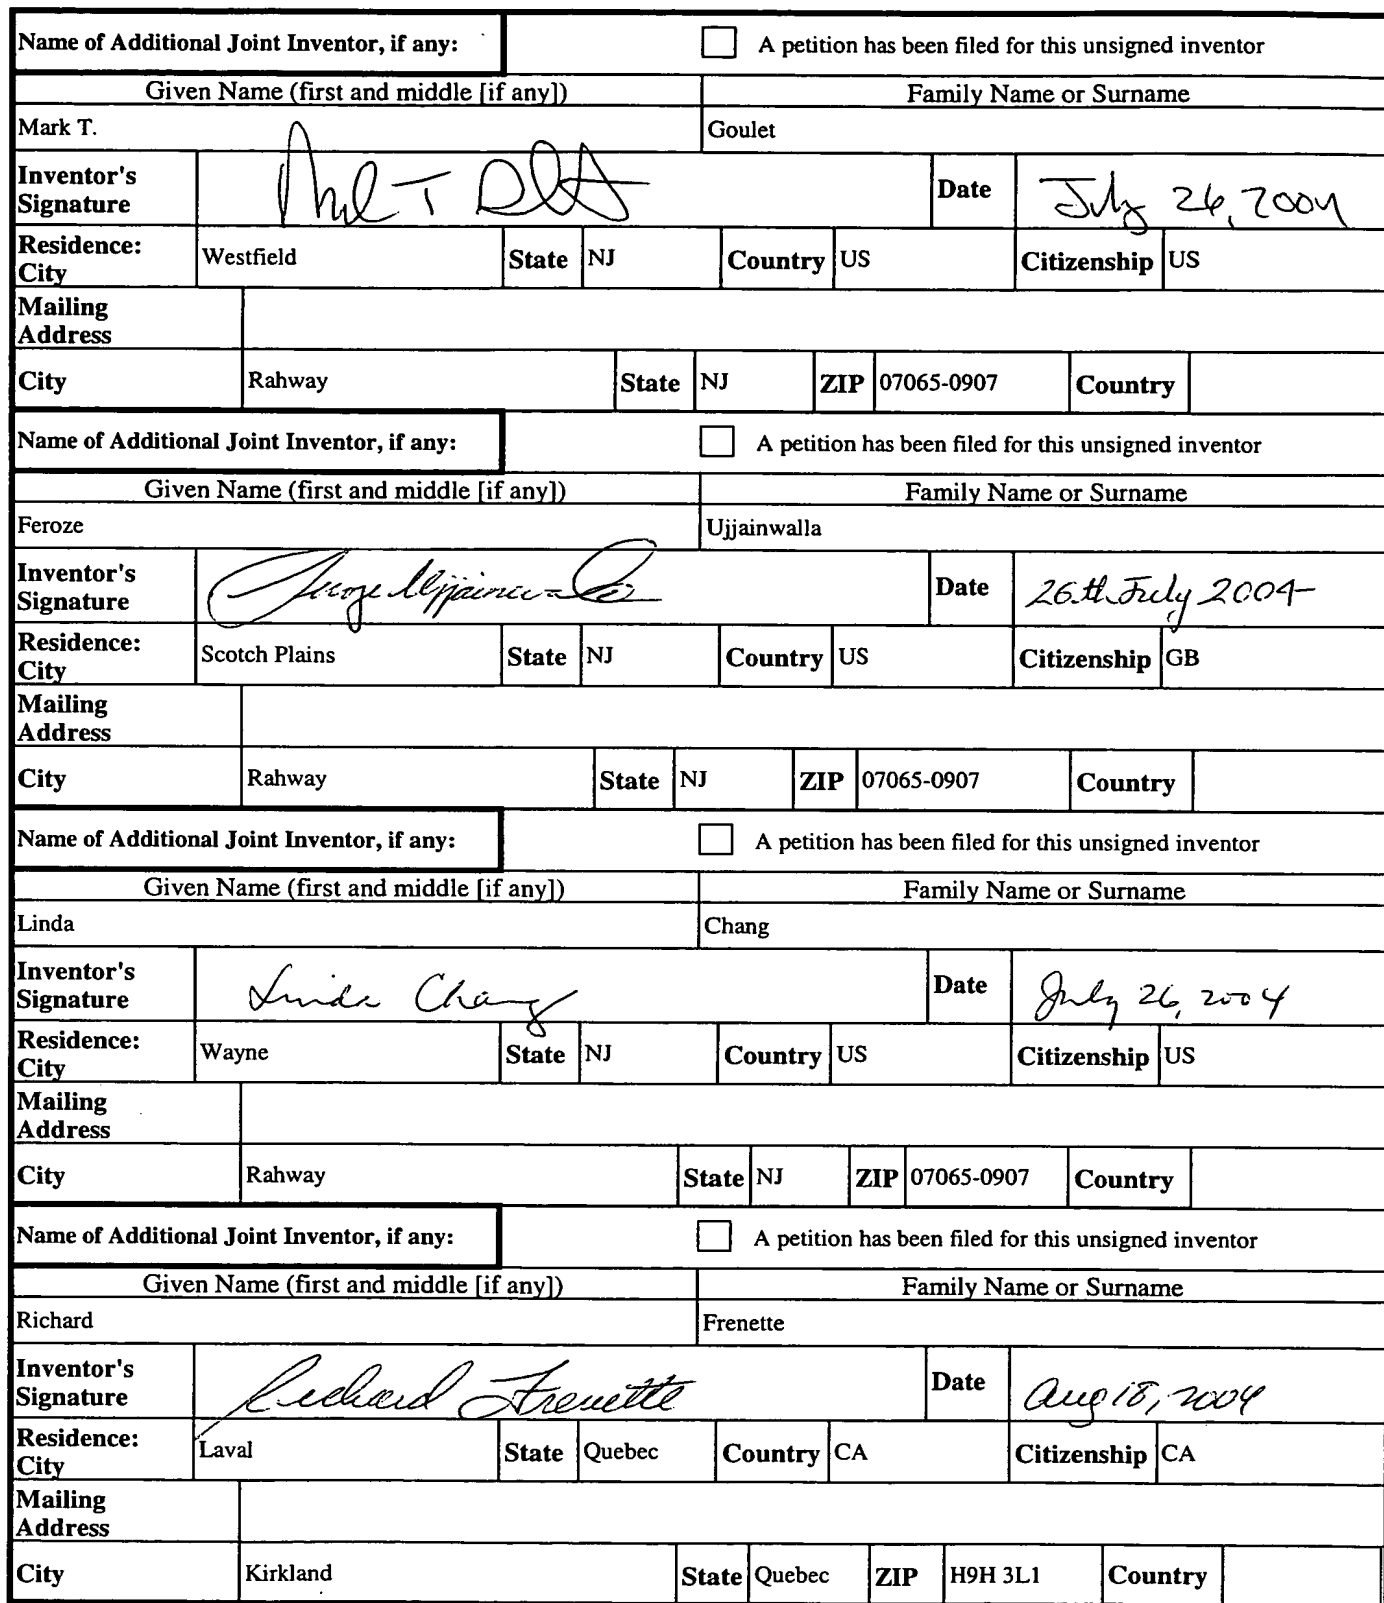 Name of Additional Joint Inventor, if any: A petition has been filed for this unsigned inventor
Given Name (first and middle [if any]) Family Name or Surname
Mark T. Goulet
Inventor's Signature Date July 26, 2004
Residence: City Westfield State NJ Country US Citizenship US
Mailing Address
City Rahway State NJ ZIP 07065-0907 Country
Name of Additional Joint Inventor, if any: A petition has been filed for this unsigned inventor
Given Name (first and middle [if any]) Family Name or Surname
Feroze Ujjainwalla
Inventor's Signature Feroze Ujjainwalla Date 26th July 2004
Residence: City Scotch Plains State NJ Country US Citizenship GB
Mailing Address
City Rahway State NJ ZIP 07065-0907 Country
Name of Additional Joint Inventor, if any: A petition has been filed for this unsigned inventor
Given Name (first and middle [if any]) Family Name or Surname
Linda Chang
Inventor's Signature Linda Chang Date July 26, 2004
Residence: City Wayne State NJ Country US Citizenship US
Mailing Address
City Rahway State NJ ZIP 07065-0907 Country
Name of Additional Joint Inventor, if any: A petition has been filed for this unsigned inventor
Given Name (first and middle [if any]) Family Name or Surname
Richard Frenette
Inventor's Signature Richard Frenette Date Aug 18, 2004
Residence: City Laval State Quebec Country CA Citizenship CA
Mailing Address
City Kirkland State Quebec ZIP H9H 3L1 Country